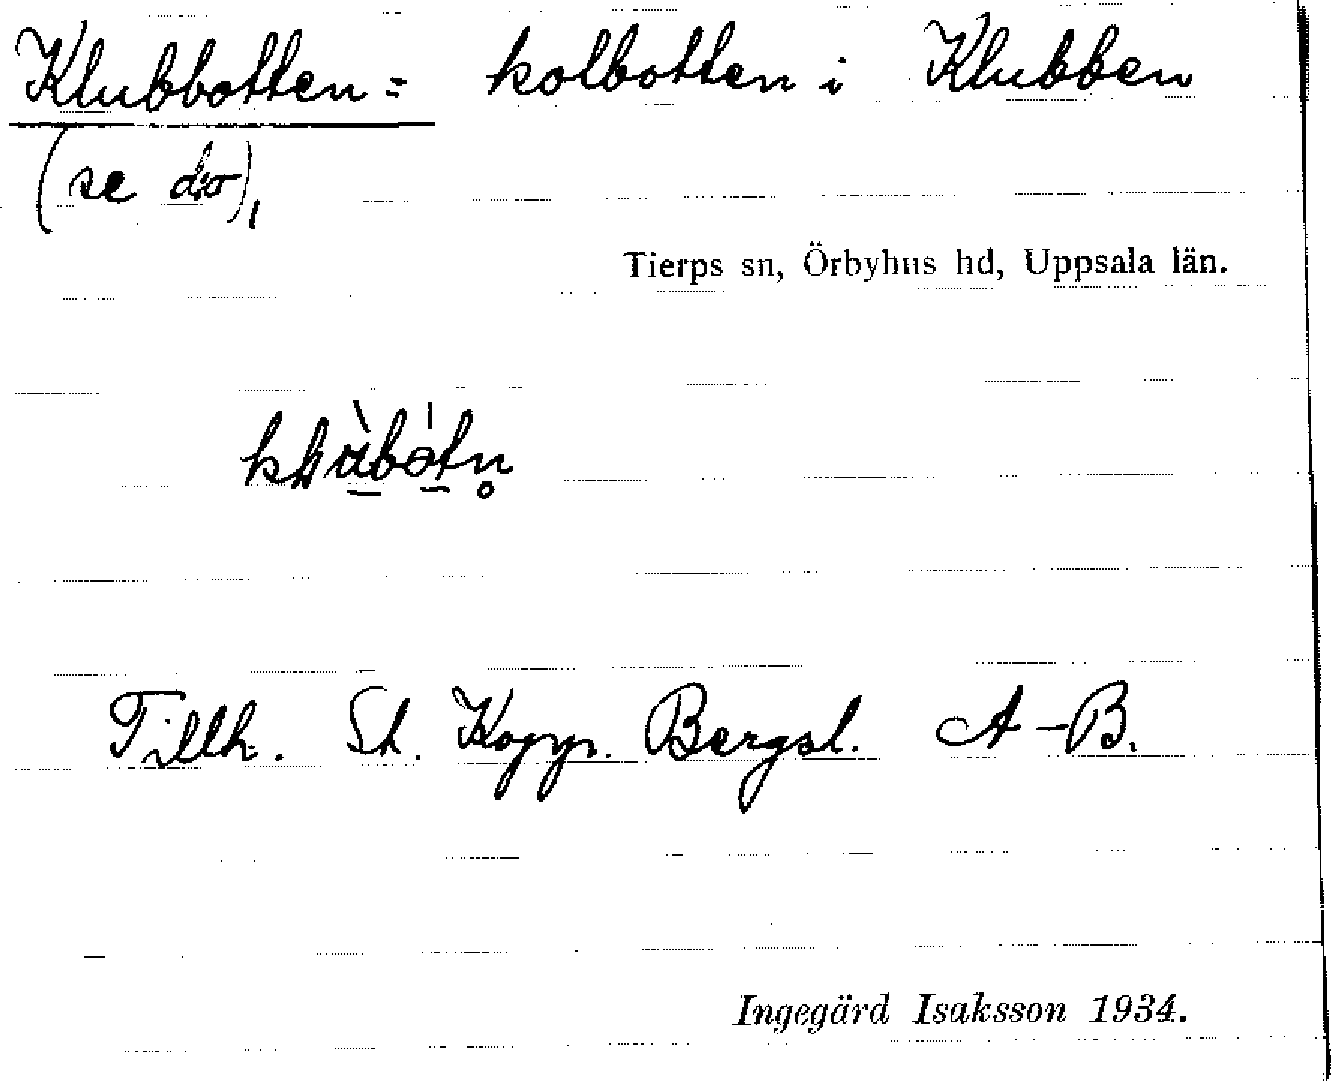 Klubbotten = kolbotten i Klubben
(se d:o),
Tierps sn, Örbyhus hd, Uppsala län.
Tillh. St. Kopp. Bergsl. A-B.
Ingegärd Isaksson 1934.